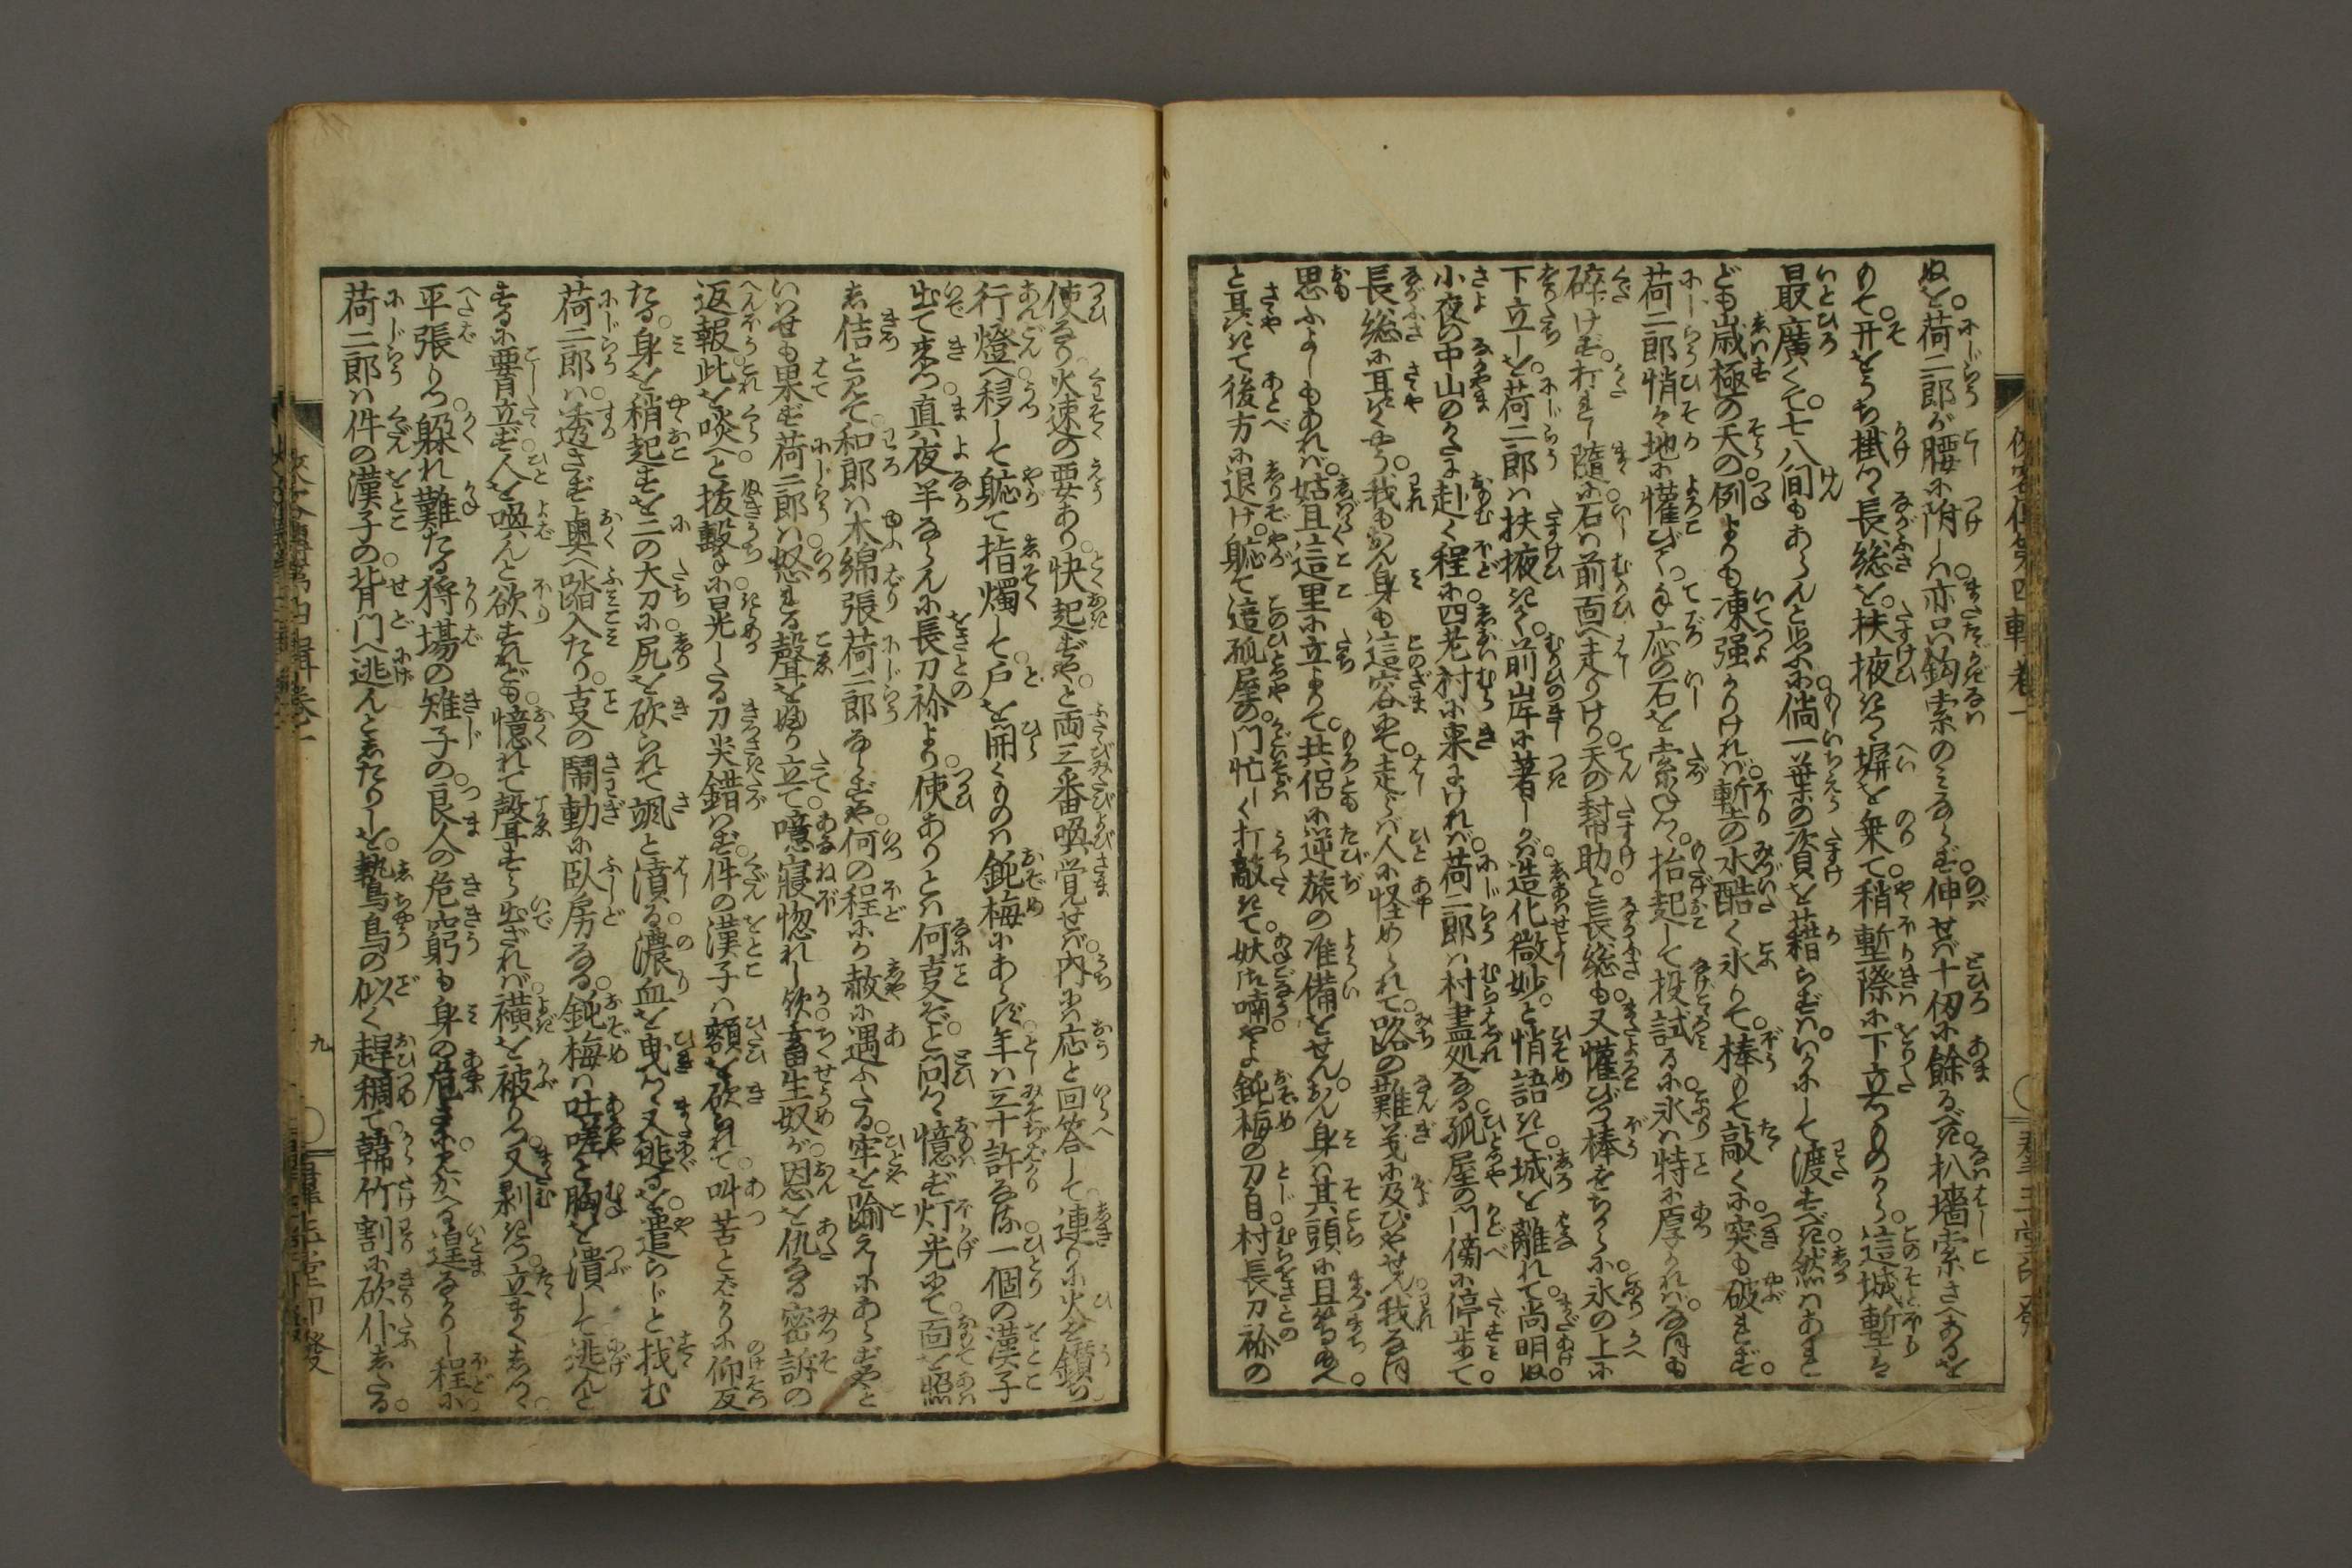 ぬと。荷二郎が腰に附しは亦是鈎索のミならず。伸せば十仞に餘るべき。䟦墻索さへあるを
もて。开をうち掛つゝ長総を。扶掖きつゝ塀を乗て。稍塹際に下立つものから。這城塹は
最廣くて。七八間もあらんと見ゆるに。倘一葉の資を藉らずは。いかにして渡すべき。然ハあれ
ども嵗極の天の。例よりも凍强かりければ。塹の水酷く氷りて。棒もて敲くに突も破れず。
荷二郎悄々地に懽びて。手応の石を索つゝ。抬起して投試るに。氷は特に厚ければ。なほも
碎けず。打まし隨に。石は前面へ走りけり。天の幇助と長総も。又懽びつゝ棒をちからに。氷の上に
下立しを。荷二郎は扶掖きて。前岸に著しかば。造化微妙。と悄語きて。城を離れて尚明ぬ。
小夜の中山のかたに赴く程に。四老村に来にければ。荷二郎は村盡処なる。孤屋の門傍に停歩て。
長総に耳語くやう。我もおん身も這容にて。走らば人に怪められて。路の難義に及びやせん。我なほ
思ふよしもあれば。姑且這里に立よりて。共侶に逆旅の准備をせん。おん身は其頭に且等給へ
と耳語きて後方に退け。軈て這孤屋の。門忙しく打敲きて。妖々喃やよ。鈍梅の刀自。村長刀祢の
使なり。火速の要あり。快起ずや。と両三番喚覚せば。内には応と回答して。連りに火を鑽ち。
行燈へ移して軈て指燭して。戸を開くものは鈍梅にあらず。年は三十許なる。一個の漢子
出て来つ。真夜半ならんに長刀祢より。使ありとは何事ぞ。と問つゝ憶ず灯光にて。面を照
して佶と見て。和郎は木綿張荷二郎ならずや。何の程にか赦に遇ふたる。牢を踰えしにあらずや。と
いはせも果ず荷二郎は。怒れる聲をふり立て。噫寝惚れし欤畜生奴が。恩を仇なる密訴の
返報。此を啖へと抜撃に。晃したる刀尖錯はず。件の漢子は額を砍られて。叫苦とばかりに仰反
たる。身を稍起すを二の大刀に。尻を砍られて颯と濆る。濃血を曳つゝ又逃るを。遣らじと找む
荷二郎は。透さず奥へ踏入たり。事の鬧動に臥房なる。鈍梅は吐嗟と胸を潰して。逃んと
するに要立ず。人を喚んと欲すれども。憶れて聲すら出ざれば。横を被りつ又剥きつ。立まくしつゝ。
平張りつ。躱れ難たる狩場の雉子の。良人の危窮も身の危さに。見かへる遑なかりし程に。
荷二郎は件の漢子の。背門へ逃んとしたりしを。鷙鳥の似く趕稠て。韓竹割に砍仆したる。
九